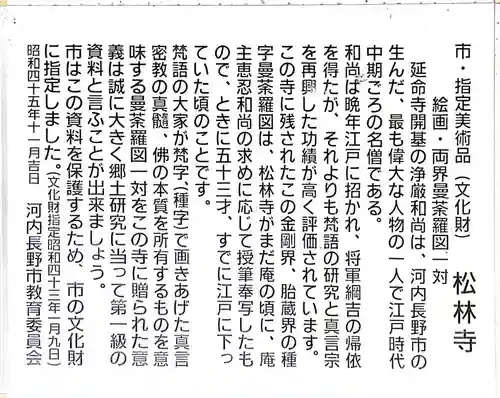 市・指定美術品（文化財）
絵画・両界曼荼羅図一対
松林寺
延命寺開基の浄厳和尚は、河内長野市の
生んだ、最も偉大な人物の一人で江戸時代
中期ごろの名僧である。
和尚は晩年江戸に招かれ、将軍綱吉の帰依
を得たが、それよりも梵語の研究と真言宗
を再興した功績が高く評価されています。
この寺に残されたこの金剛界、胎蔵界の種
字曼荼羅図は、松林寺がまだ庵の頃に、庵
主恵忍和尚の求めに応じて授筆奉写したも
ので、ときに五十三才、すでに江戸に下っ
ていた頃のことです。
梵語の大家が梵字、（種字）で画きあげた真言
密教の真髄、佛の本質を所有するものを意
味する曼荼羅図一対をこの寺に贈られた意
義は誠に大きく郷土研究に当って第一級の
資料と言ふことが出来ましょう。
市はこの資料を保護するため、市の文化財
に指定しました。（文化財指定昭和四十三年一月九日）
昭和四十五年十一月吉日　河内長野市教育委員会